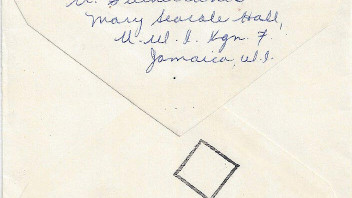 Mary Seacole Hall,
U. W. I. Kgn. 7
Jamaica, W.I.